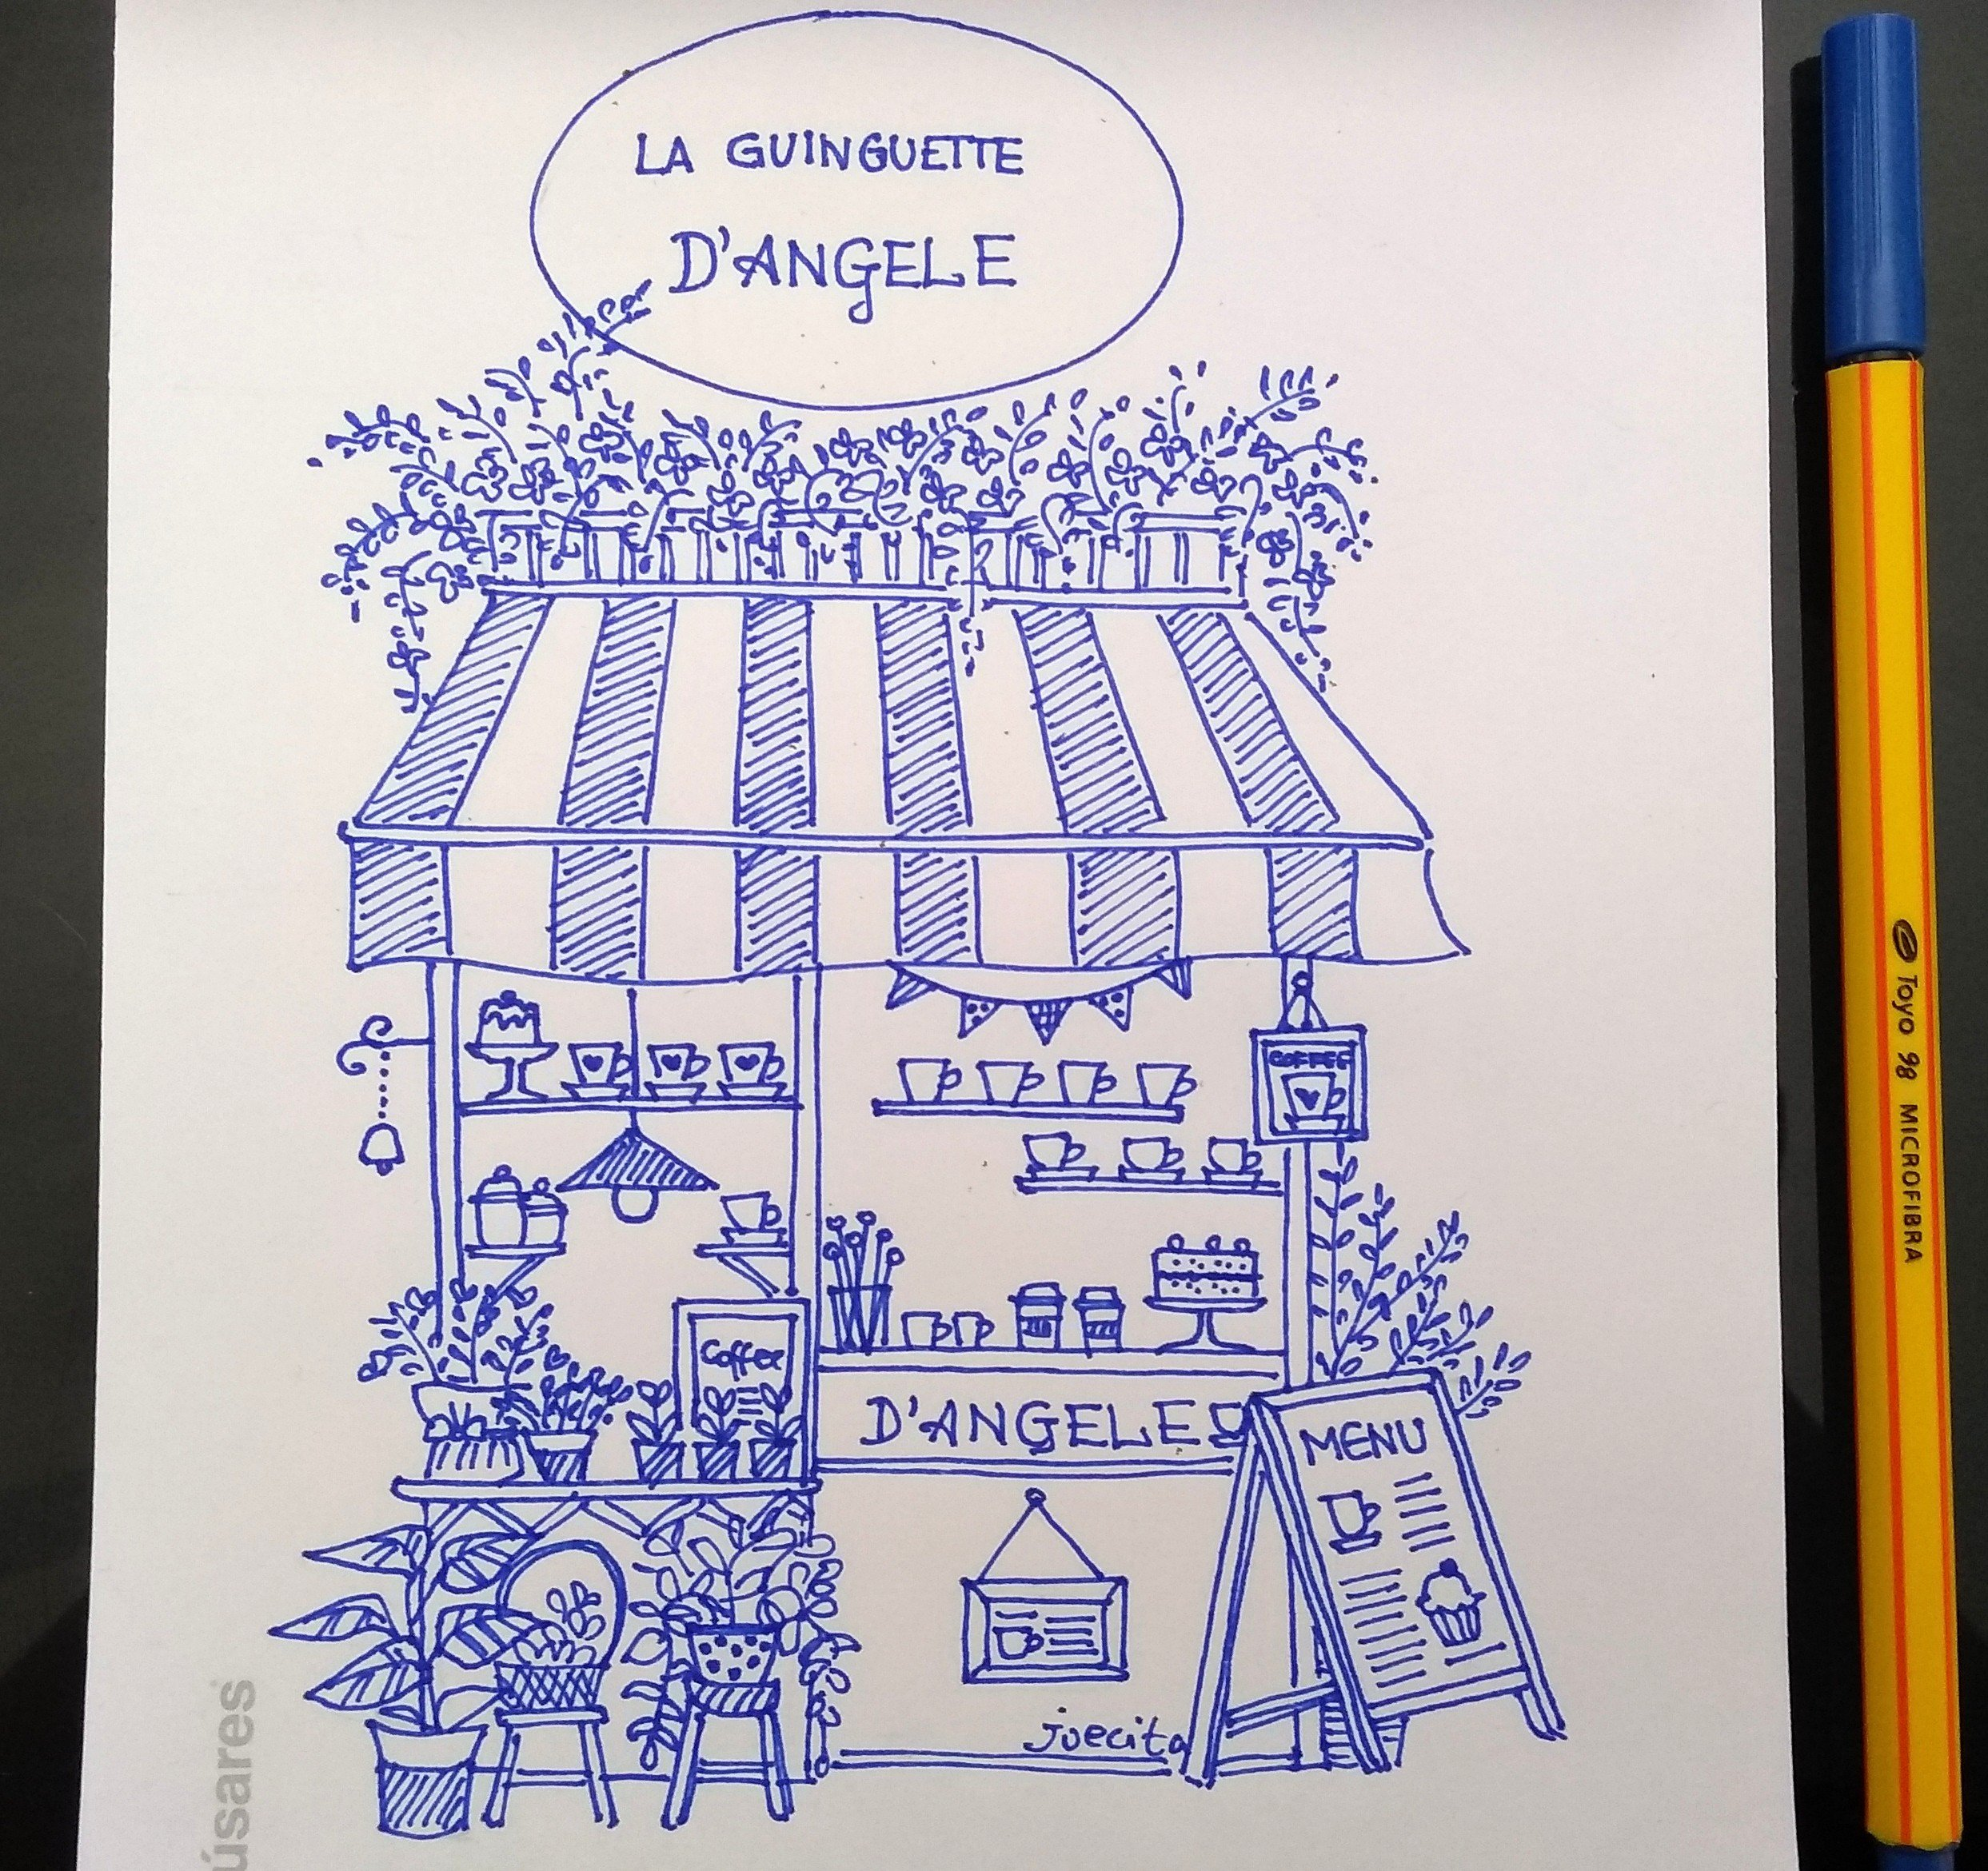 LA GUINGUETTE
D'ANGELE
COFFEE
Coffee
D'ANGELE
MENU
juecita
úsares
Toyo 98 MICROFIBRA